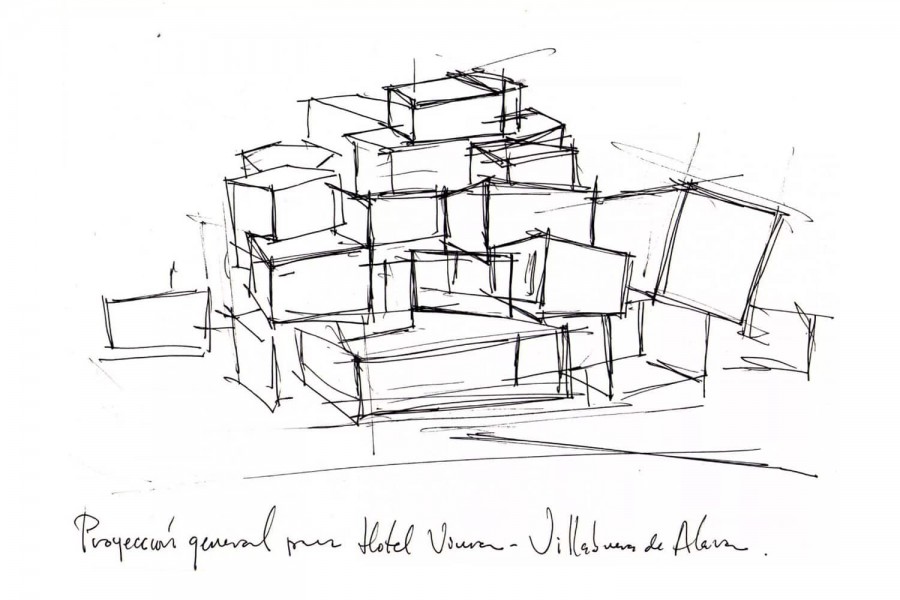 Proyección general para Hotel Viura - Villabuena de Alava.